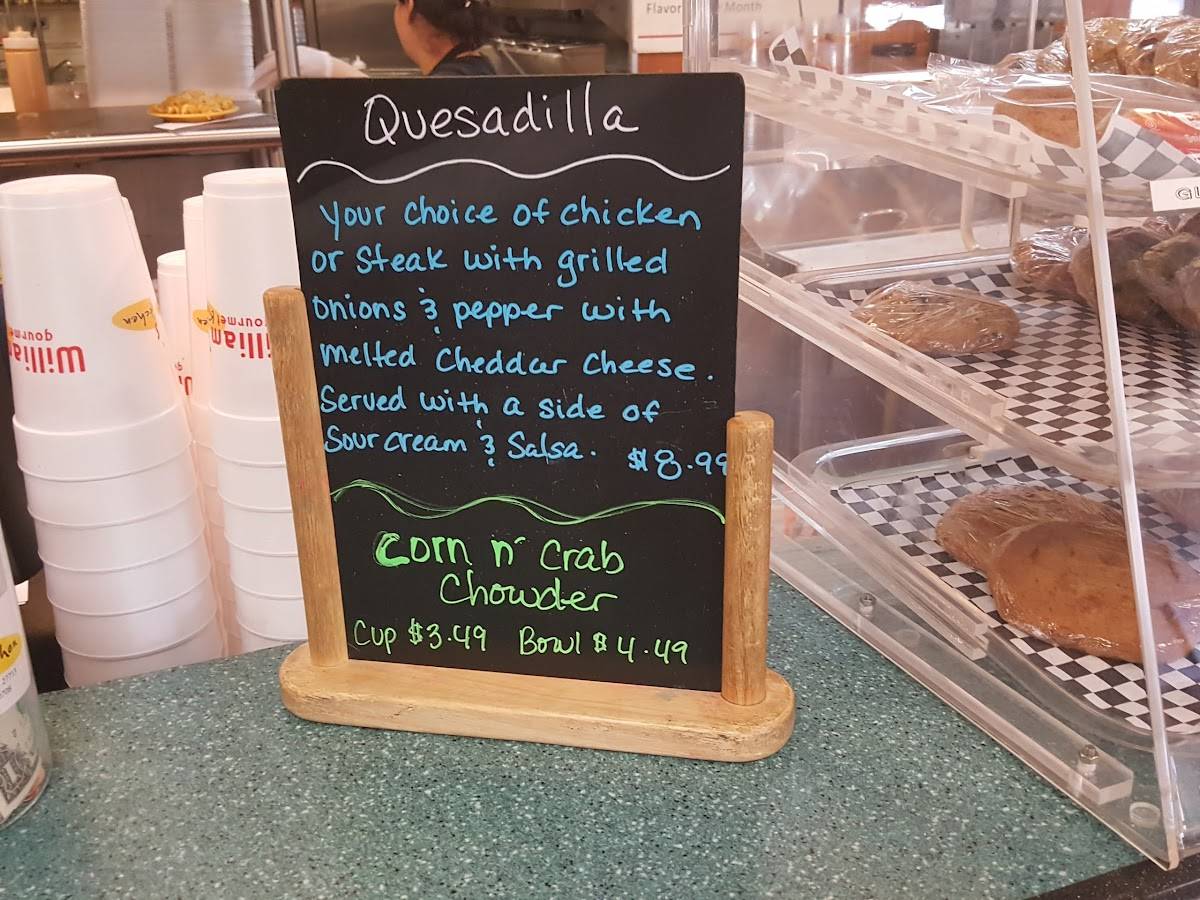 Flavor
Month
Quesadilla
Your choice of chicken
or Steak with grilled
onions & pepper with
melted Cheddar Cheese.
Served with a side of
Sour cream & Salsa. $8.99
Corn n' Crab
Chowder
Cup $3.49 Bowl $4.49
William
gourmet
William
gourmet
GL